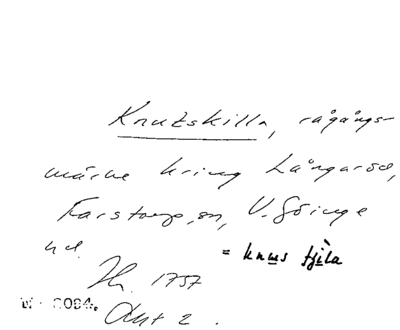 Knutskilla, rågångs-
märke kring Långaröd,
Farstorp, sn, V. Göinge
hd.
= knus tjila
Jb. 1757
Akt 2.